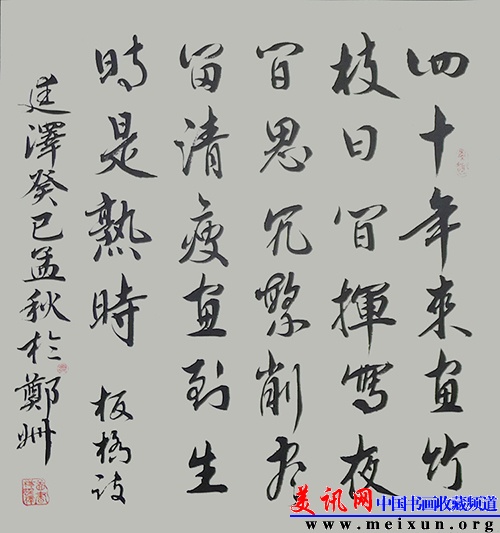 四十年來畫竹
枝日間揮寫夜
間思冗繁削盡
留清瘦畫到生
時是熟時 板橋詩
建澤癸巳孟秋於鄭州
美讯网 中国书画收藏频道
www.meixun.org